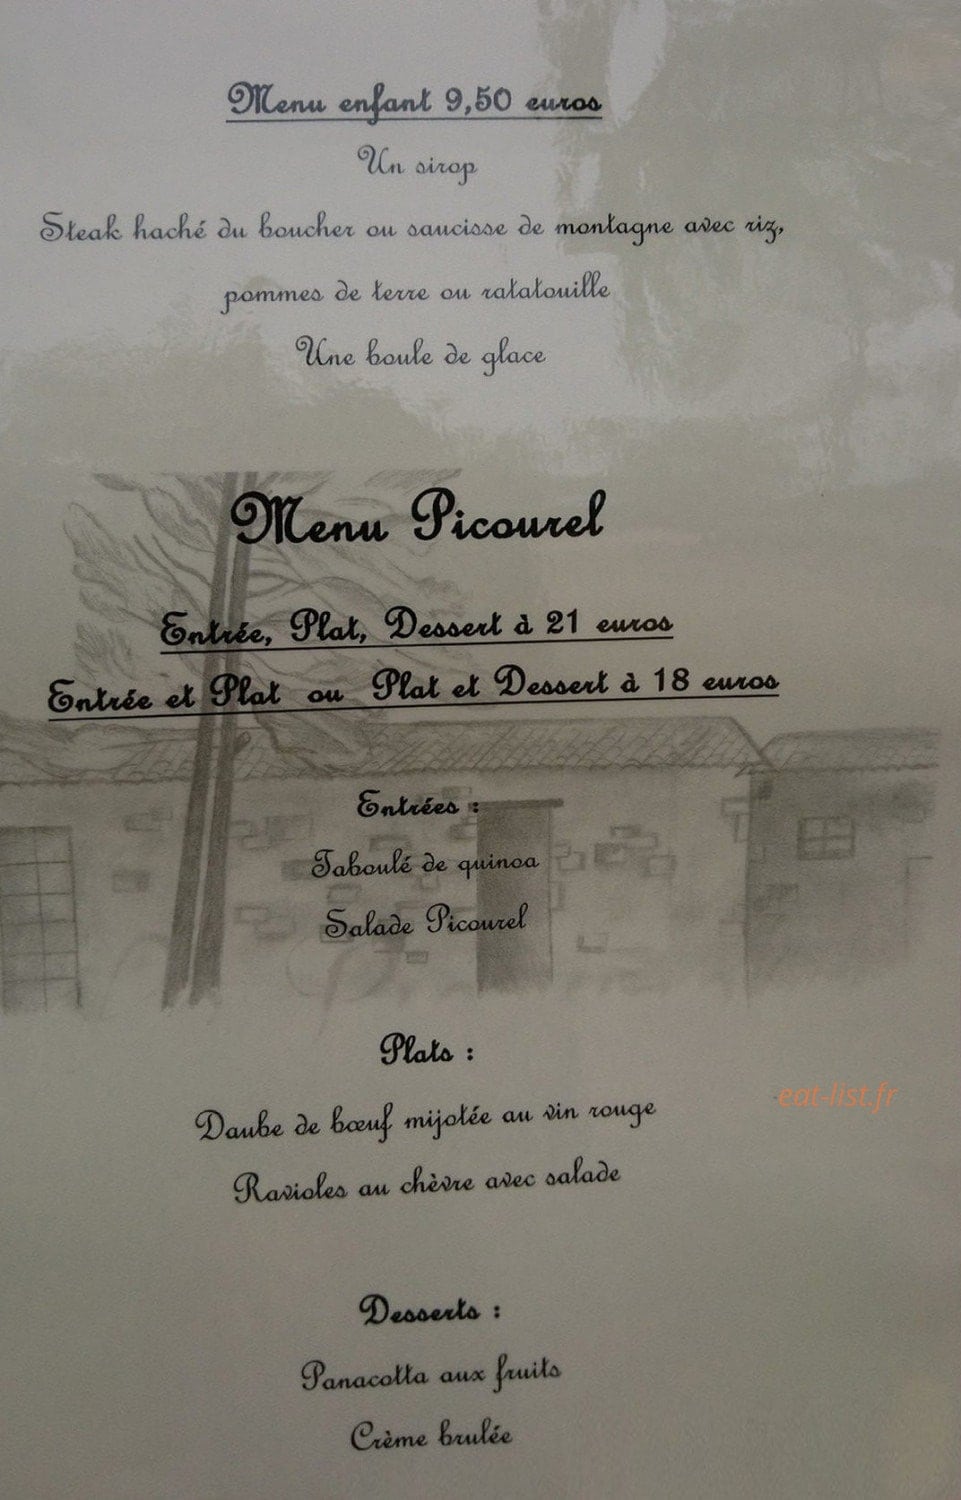 Menu enfant 9,50 euros
Un sirop
Steak haché du boucher ou saucisse de montagne avec riz,
pommes de terre ou ratatouille
Une boule de glace
Menu Picourel
Entrée, Plat, Dessert à 21 euros
Entrée et Plat ou Plat et Dessert à 18 euros
Entrées :
Taboulé de quinoa
Salade Picourel
Plats :
eat-list.fr
Daube de bœuf mijotée au vin rouge
Ravioles au chèvre avec salade
Desserts :
Panacotta aux fruits
Crème brulée